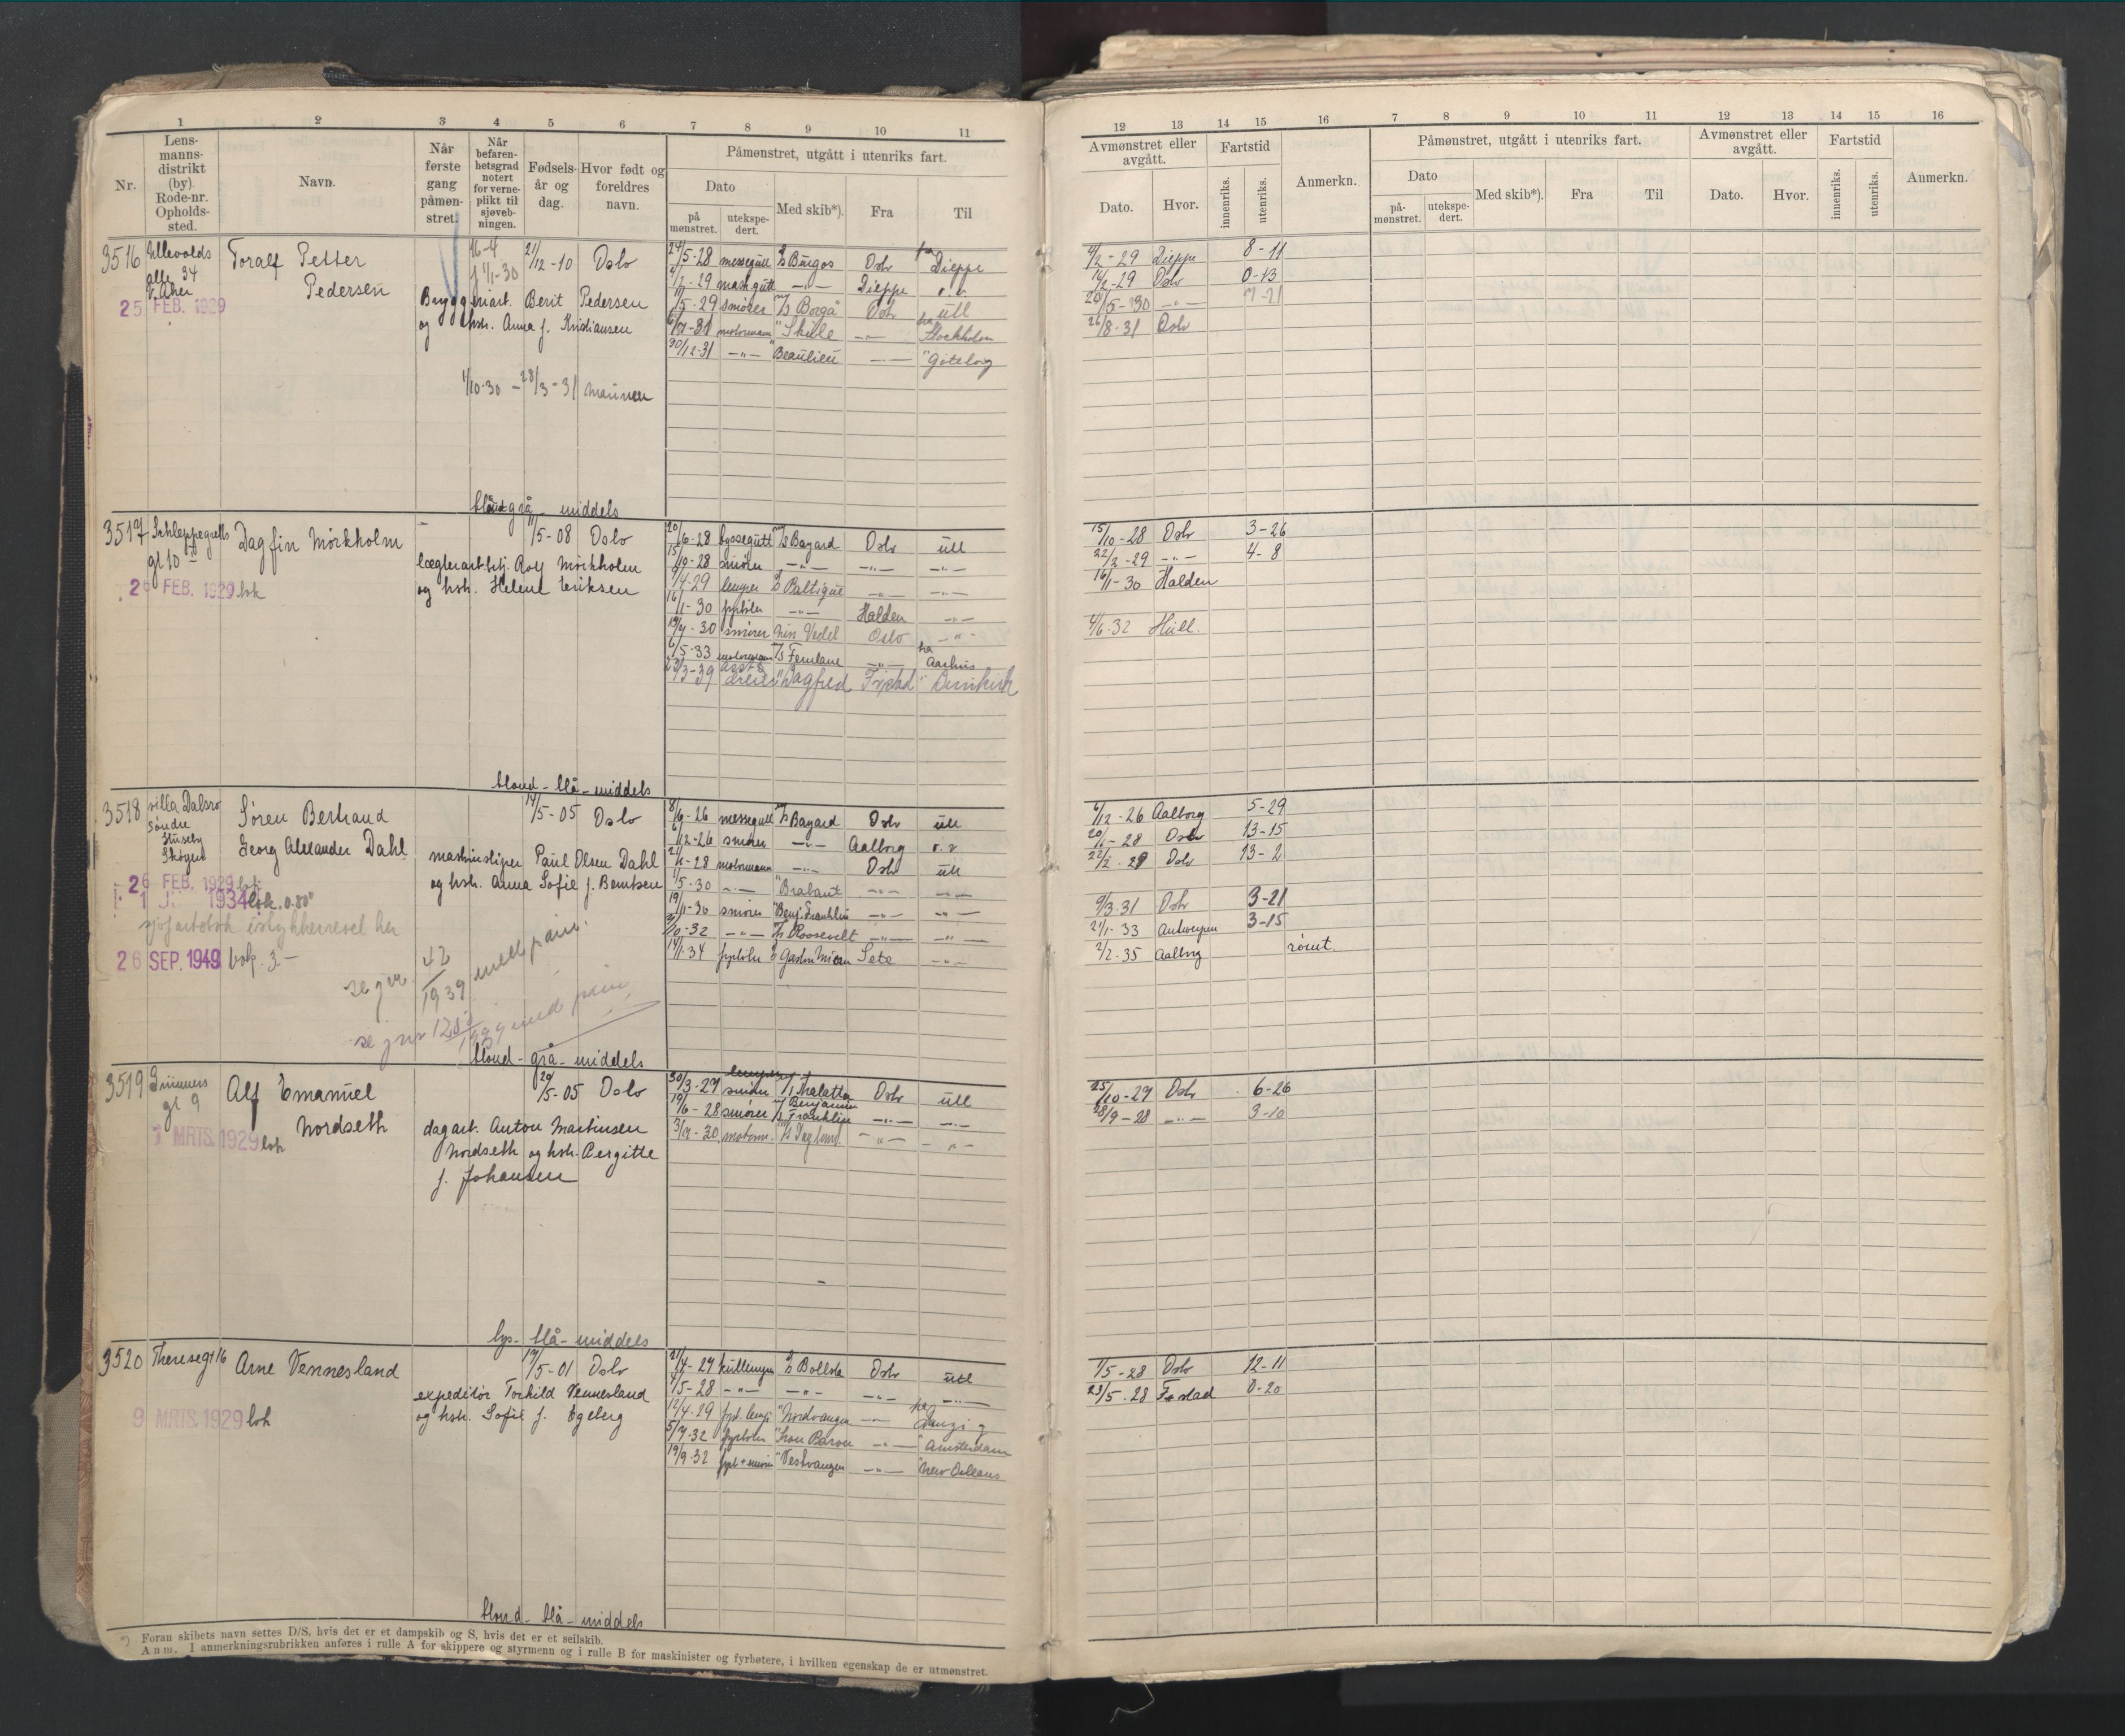 1 2 3 4 5 6 7 8 9 10 11
Nr.
Lens-
manns-
distrikt
(by)
Rode-nr.
Opholds-
sted.
Navn.
Når
første
gang
påmøn-
stret.
Når
befaren-
hetsgrad
notert
for verne-
plikt til
sjøveb-
ningen.
Fødsels-
år og
dag.
Hvor født og
foreldres
navn.
Påmønstret, utgått i utenriks fart.
Dato
på
mønstret.
utekspe-
dert.
Med skib*).
Fra
Til
12 13 14 15 16 7 8 9 10 11 12 13 14 15 16
Avmønstret eller
avgått.
Dato. Hvor.
Fartstid
innenriks. utenriks.
Anmerkn.
Påmønstret, utgått i utenriks fart.
Dato
på-
mønstret.
utekspe-
dert.
Med skib*). Fra Til
Avmønstret eller
avgått.
Dato. Hvor.
Fartstid
innenriks. utenriks.
Anmerkn.
3516 Ullevolds Toralf Petter 16-4 21/12-10 Oslo
alle 34 Pedersen
V. Aker
25 FEB. 1929
Bryggeriarb. Berit Pedersen
og hstr. Anna f. Kristiansen
1/10-30 - 28/3-31 marinen
24/5-28 messegutt D/s Burgos Oslo Dieppe 4/2-29 Dieppe 8-11
4/2-29 mask.gutt -"- Dieppe 14/2-29 Oslo 0-13
5-29 smører M/s Borgå Oslo utl 20/5-30 -"- 7-21
motormann " Skule -"- Stockholm 26/8-31 Oslo
30/12-31 -"- " Beaulieu -"- " Göteborg
blond grå middels
3517 Schleppegrells Dagfin Mörkholm 5-08 Oslo
gt 10
26 FEB. 1929 lok
Rolf Mörkholm
og hstr. Helene Eriksen
20/6-28 byssegutt M/s Bayard Oslo utl 15/10-28 Oslo 3-26
15/10-28 smører -"- -"- -"- 22/2-29 -"- 4-8
4-29 lemper D/s Baltique -"- -"- 16/1-30 Halden
16/1-30 fyrböter -"- Halden -"-
30 smører Vedel Oslo -"- 4/6-32 Hull.
6/5-33 motormann M/s Fernlane -"- Aarhus
23/3-39 " Dagfred
blond - blå - middels
3518 villa Dalsro Sören Bertrand 14/5-05 Oslo
Söndre Georg Alexander Dahl
Huseby
Sköyen
26 FEB. 1929 lok
1934 lok. 0.80
26 SEP. 1949 bok. 3.-
Paul Olsen Dahl
og hstr. Anna Sofie f. Berntsen
se jnr 42/1939
8/6-26 messegutt M/s Bayard Oslo utl 6/12-26 Aalborg 5-29
6/12-26 smører -"- Aalborg 20/1-28 Oslo 13-15
motormann -"- Oslo utl 22/2-29 Oslo 13-2
5-30 -"- " Brabant -"- -"- 9/3-31 Oslo 3-21
19/11-30 smører " Benj. Franklin -"- -"- 21/1-33 Antwerpen 3-15
10-32 -"- Roosevelt -"- -"- 2/2-35 Aalborg römt
14/1-34 fyrböter Sete -"-
blond - grå - middels
3519 Alf Emanuel 20/5-05 Oslo
gt 9 Nordseth
7 MRTS. 1929 lok
dagarb. Anton Martinsen
Nordseth og hstr. Bergitte
f. Johansen
30/3-27 smører Oslo utl 25/10-27 Oslo 6-26
19/6-28 smører M/s Benjamin Franklin -"- -"- 28/9-28 -"- 3-10
motorm. -"- -"-
lys - blå - middels
3520 Theresegt 16 Arne Vennesland 19/5-01 Oslo
9 MRTS. 1929 lok
expeditör Torkild Vennesland
og hstr. Sofie f. Egeberg
kullemper Oslo utl 1/5-28 Oslo 12-11
5-28 -"- -"- -"- -"- 23/5-28 F.stad 0-20
12/4-29 " Nordvangen -"- Danzig
32 fyrböter " Iron Baron -"- " Amsterdam
19/9-32 " Vestvangen -"- " New Orleans
blond - blå - middels
*) Foran skibets navn settes D/S, hvis det er et dampskib og S, hvis det er et seilskib.
Anm. I anmerkningsrubrikken anføres i rulle A for skippere og styrmenn og i rulle B for maskinister og fyrbøtere, i hvilken egenskap de er utmønstret.